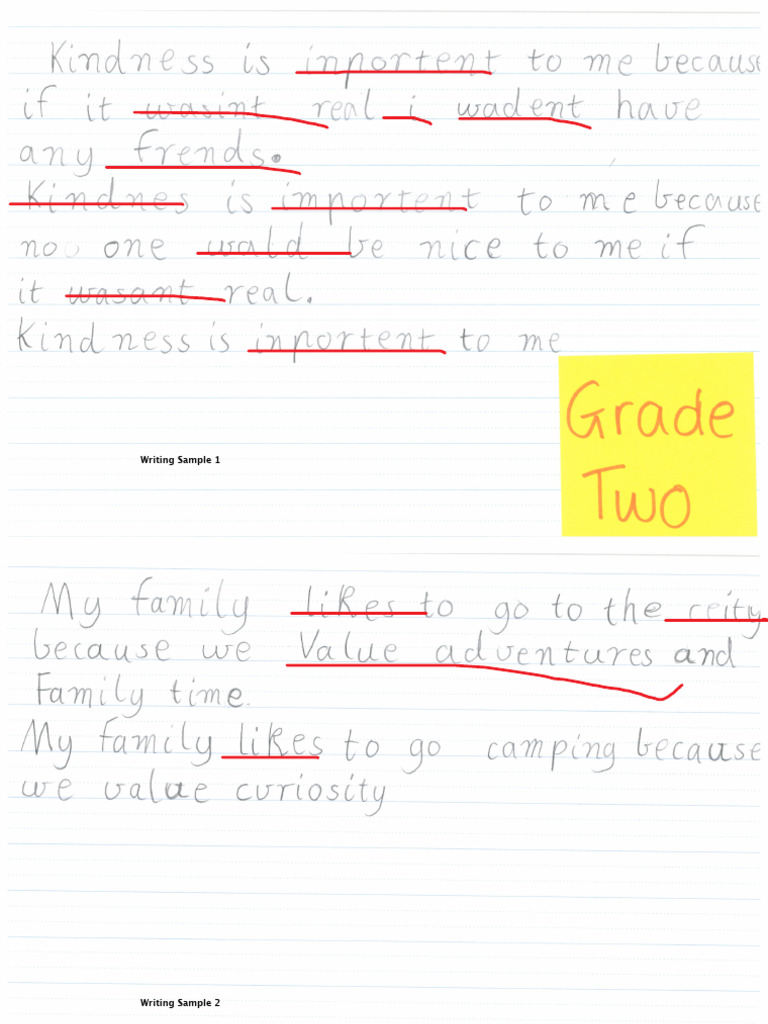 Kindness is inportent to me because
if it wasint real i wadent have
any frends.
Kindnes is importent to me because
no one wald be nice to me if
it wasant real.
Kindness is inportent to me
Grade
Two
Writing Sample 1
My family likes to go to the ceity
because we Value adventures and
Family time.
My family likes to go camping because
we value curiosity
Writing Sample 2